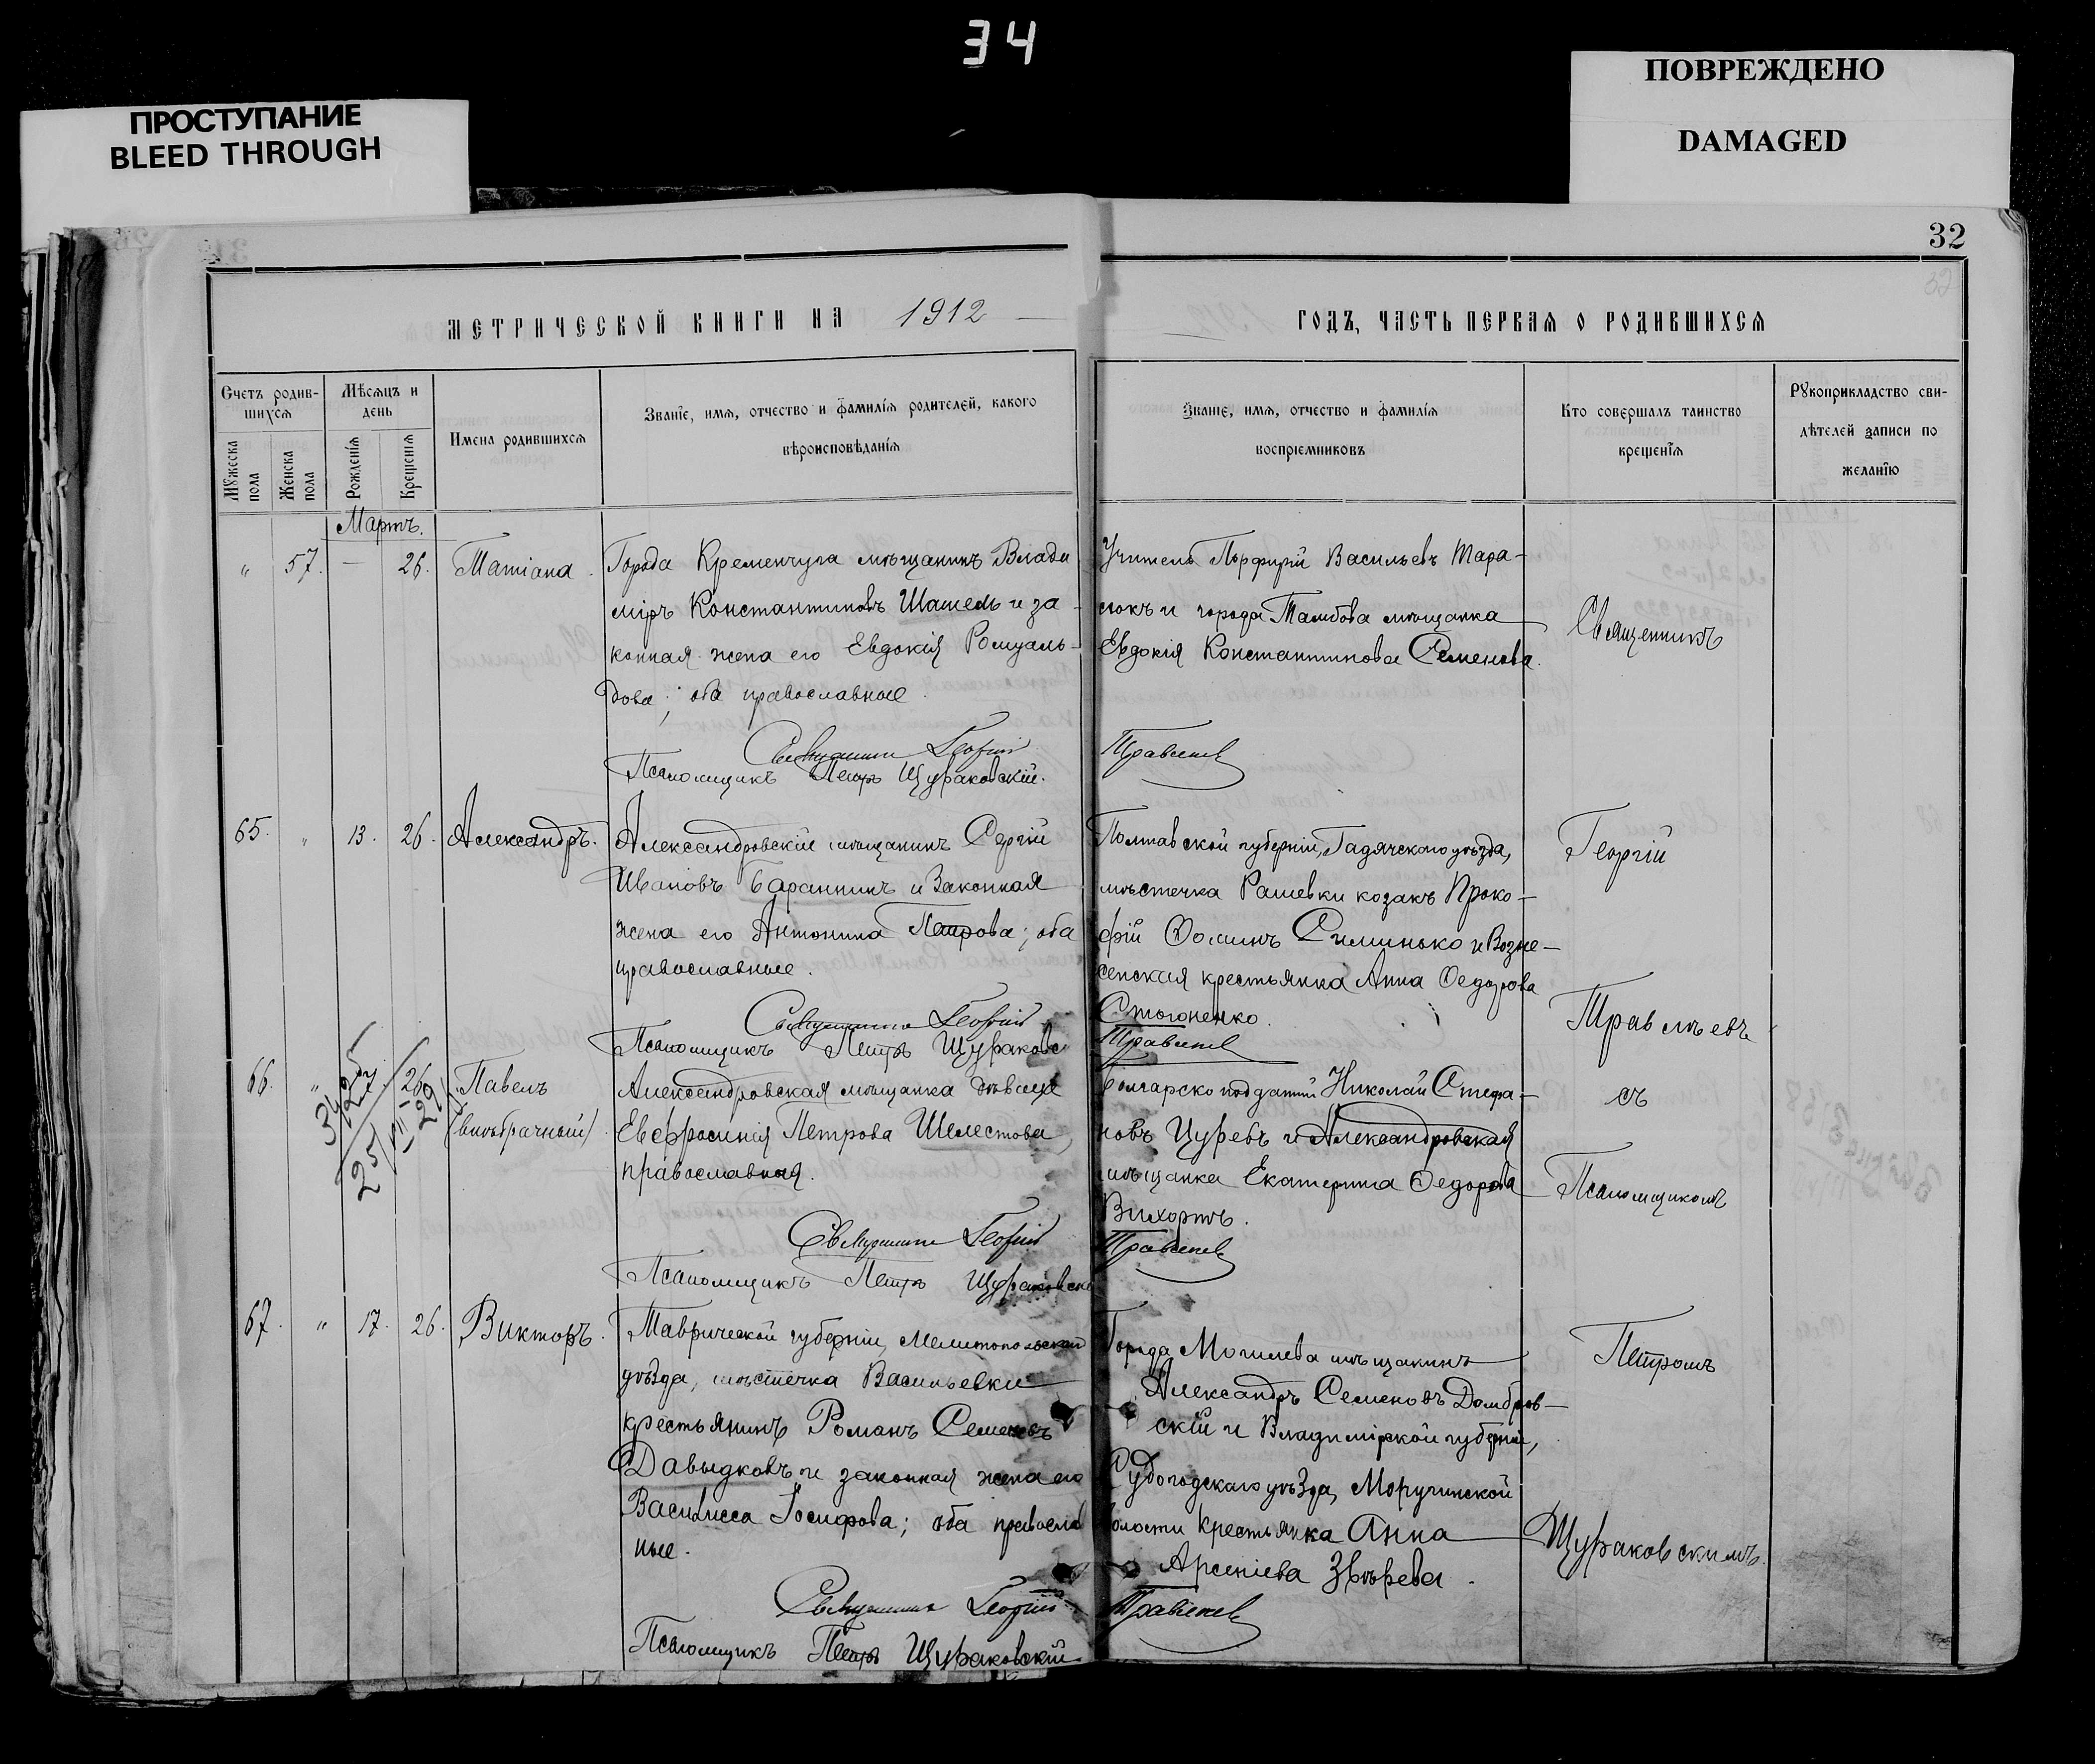 34
ПРОСТУПАНИЕ
BLEED THROUGH
ПОВРЕЖДЕНО
DAMAGED
32
МЕТРИЧЕСКОЙ КНИГИ НА 1912
ГОДЪ, ЧАСТЬ ПЕРВАЯ О РОДИВШИХСЯ
Счетъ родив-
шихся
Мѣсяцъ и
день
Мужеска
пола
Женска
пола
Рожденія
Крещенія
Имена родившихся
Званіе, имя, отчество и фамилія родителей, какого
вѣроисповѣданія
Званіе, имя, отчество и фамилія
воспріемниковъ
Кто совершалъ таинство
крещенія
Рукоприкладство сви-
дѣтелей записи по
желанію
Мартъ.
" 57. — 26. Татіана.
Города Кременчуга мѣщанинъ Влади
міръ Константиновъ Шатель и за-
конная жена его Евдокія Ромуаль-
дова; оба православные.
Священникъ Георгій
Псаломщикъ Петръ Щураковскій.
Учитель Порфирій Васильевъ Тара-
сюкъ и города Тамбова мѣщанка
Евдокія Константинова Семенова.
65. " 13. 26. Александръ.
Александровскій мѣщанинъ Сергій
Ивановъ Баранникъ и законная
жена его Антонина Петрова; оба
православные.
Священникъ Георгій
Псаломщикъ Петръ Щураковс
Полтавской губерніи, Гадячскаго уѣзда,
мѣстечка Рашевки козакъ Проко-
фій Ѳоминъ Симинько и Возне-
сенская крестьянка Анна Ѳедорова
Стогоненко.
66. " 26. Павелъ
(внѣбрачный)
Александровская мѣщанка дѣвица
Евфросинія Петрова Шелестова,
православная.
Священникъ Георгій
Псаломщикъ Петръ Щураковскі
Болгарско подданій Николай Стефа-
новъ Цуревъ и Александровская
мѣщанка Екатерина Ѳедорова
Вихоръ.
67. " 17. 26. Викторъ.
Таврической губерніи, Мелитопольскаго
уѣзда, мѣстечка Васильевки
крестьянинъ Романъ Семеновъ
Давыдковъ и законная жена его
Василисса Іосифова; оба православ
ные.
Священникъ Георгій
Псаломщикъ Петръ Щураковскій
Города Могилева мѣщанинъ
Александръ Семеновъ Домбров-
скій и Владимірской губерніи,
Судогодскаго уѣзда, Моругинской
волости крестьянка Анна
Арсеніева Звѣрева.
Священникъ
Георгій
съ
Псаломщикомъ
Петромъ
Щураковскимъ.